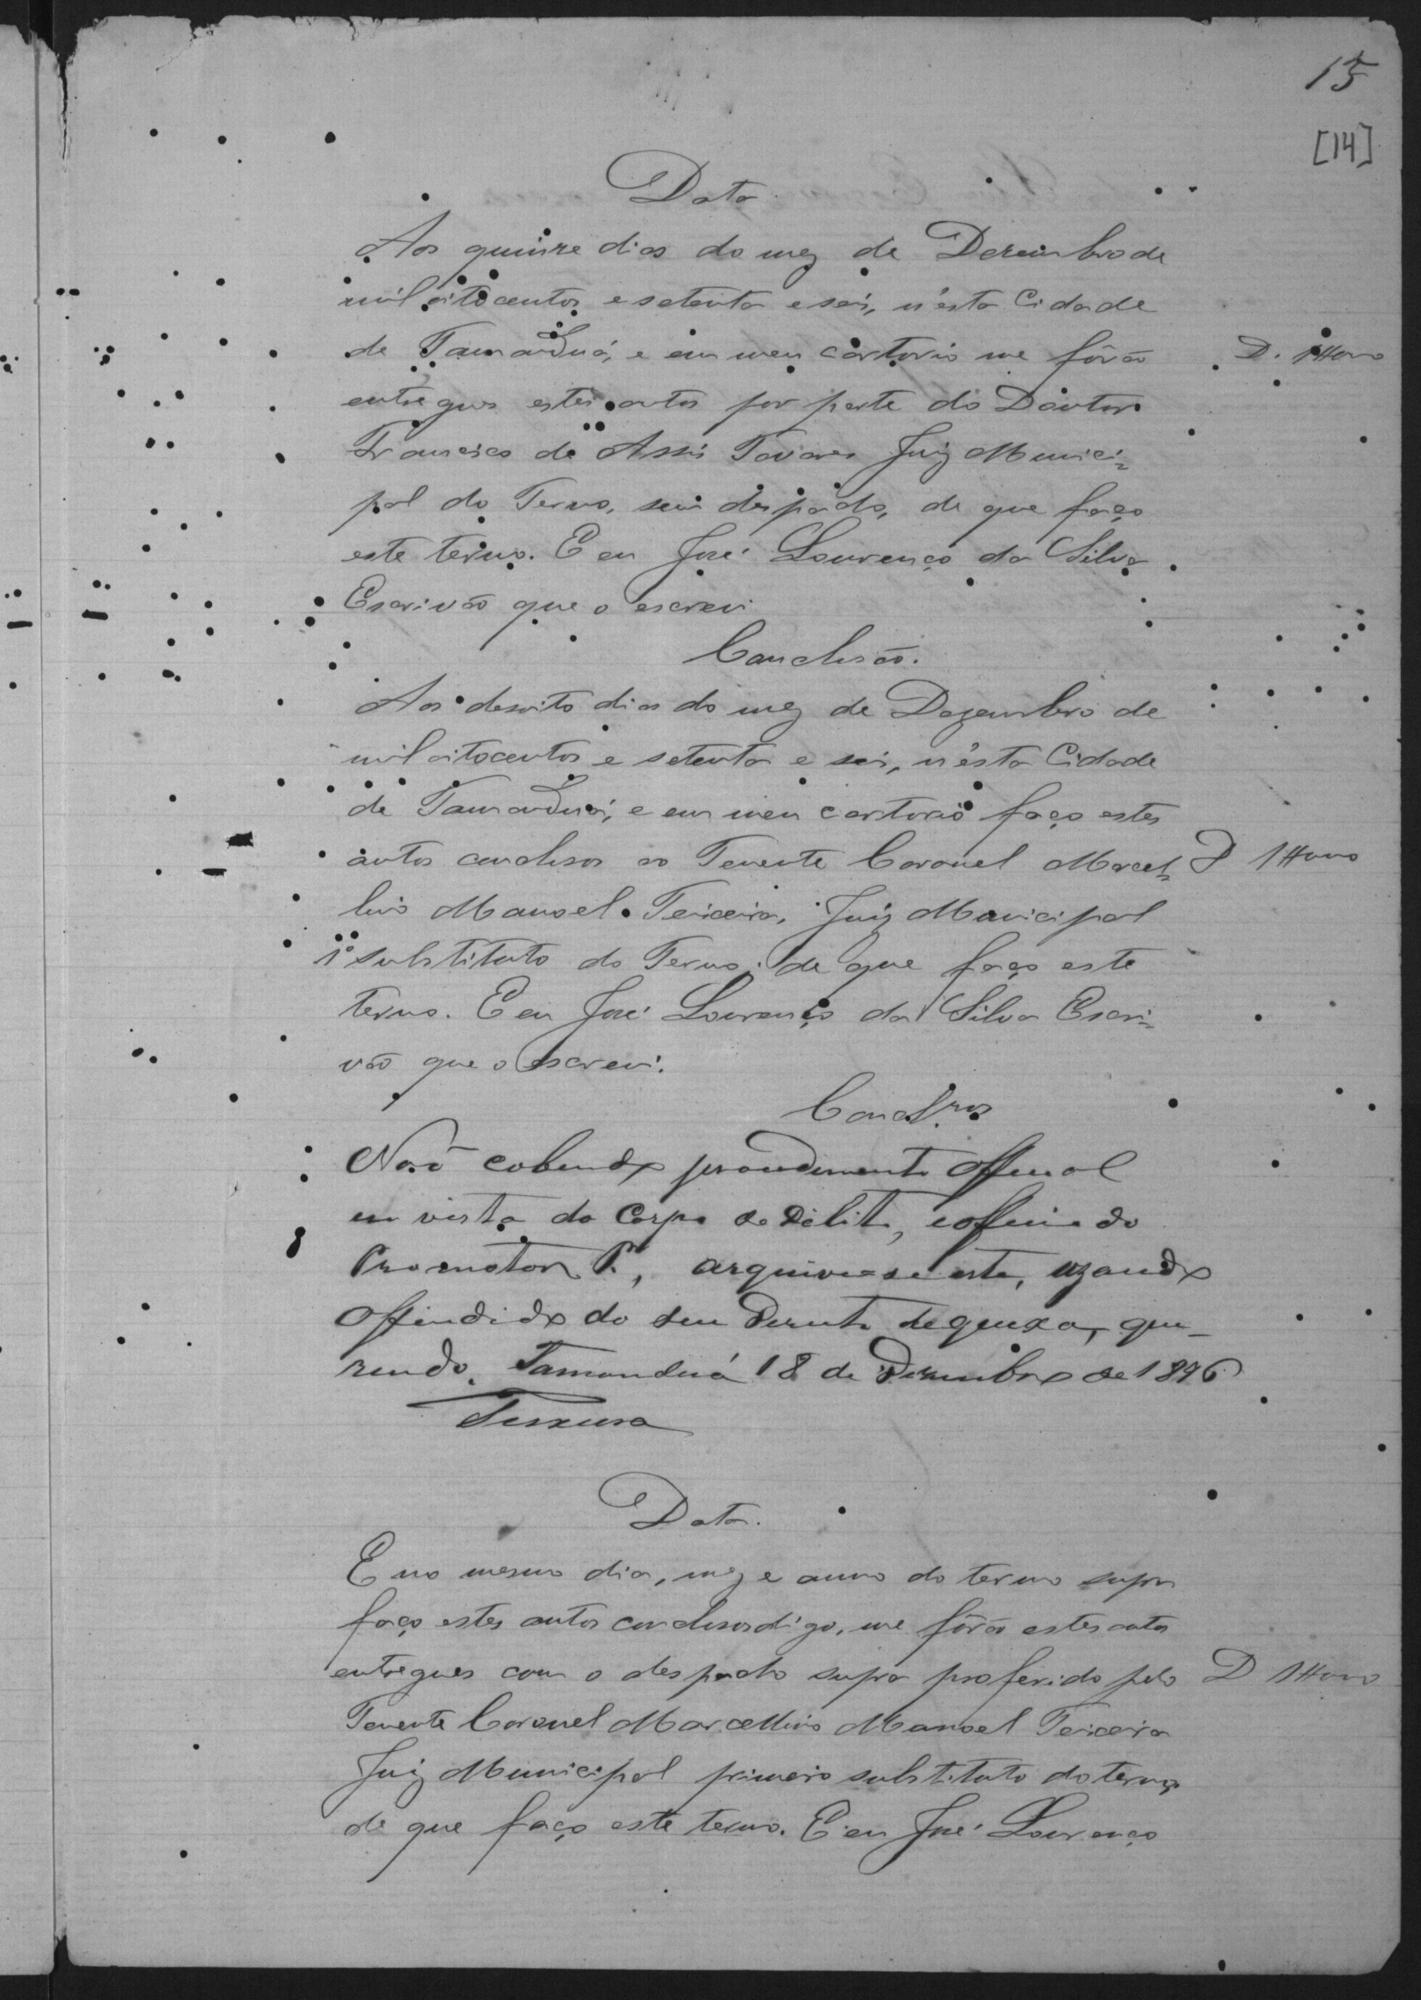 15
[14]
Data.
Aos quinze dias do mez de Dezembro de
mil oitocentos e setenta e seis, n'esta Cidade
de Tamanduá, e em meu cartorio me fôrão
D.
entregues estes autos por parte do Doutor
Francisco de Assis Tavares Juiz Munici-
pal do Termo, sem despacho, de que faço
este termo. E eu José Lourenço da Silva
Escrivão que o escrevi
Conclusão.
Aos desoito dias do mez de Dezembro de
mil oitocentos e setenta e seis, n'esta Cidade
de Tamanduá, e em meu cartorio faço estes
autos conclusos ao Tenente Coronel Marcel-
D
lino Manoel Teixeira, Juiz Municipal
1º substituto do Termo; de que faço este
termo. E eu José Lourenço da Silva Escri-
vão que o escrevi.
Concl.ºˢ
Não cabendo procedimento official
em vista do Corpo de Delito, e officio do
Promotor P., archive-se este, uzando
offendido do seu Direito de queixa, que-
rendo. Tamanduá 18 de Dezembro de 1876
Teixeira
Data.
E no mesmo dia, mez e anno do termo supra
faço estes autos conclusos digo, me fôrão estes autos
entregues com o despacho supra proferido pelo
D
Tenente Coronel Marcellino Manoel Teixeira
Juiz Municipal primeiro substituto do termo
de que faço este termo. E eu José Lourenço